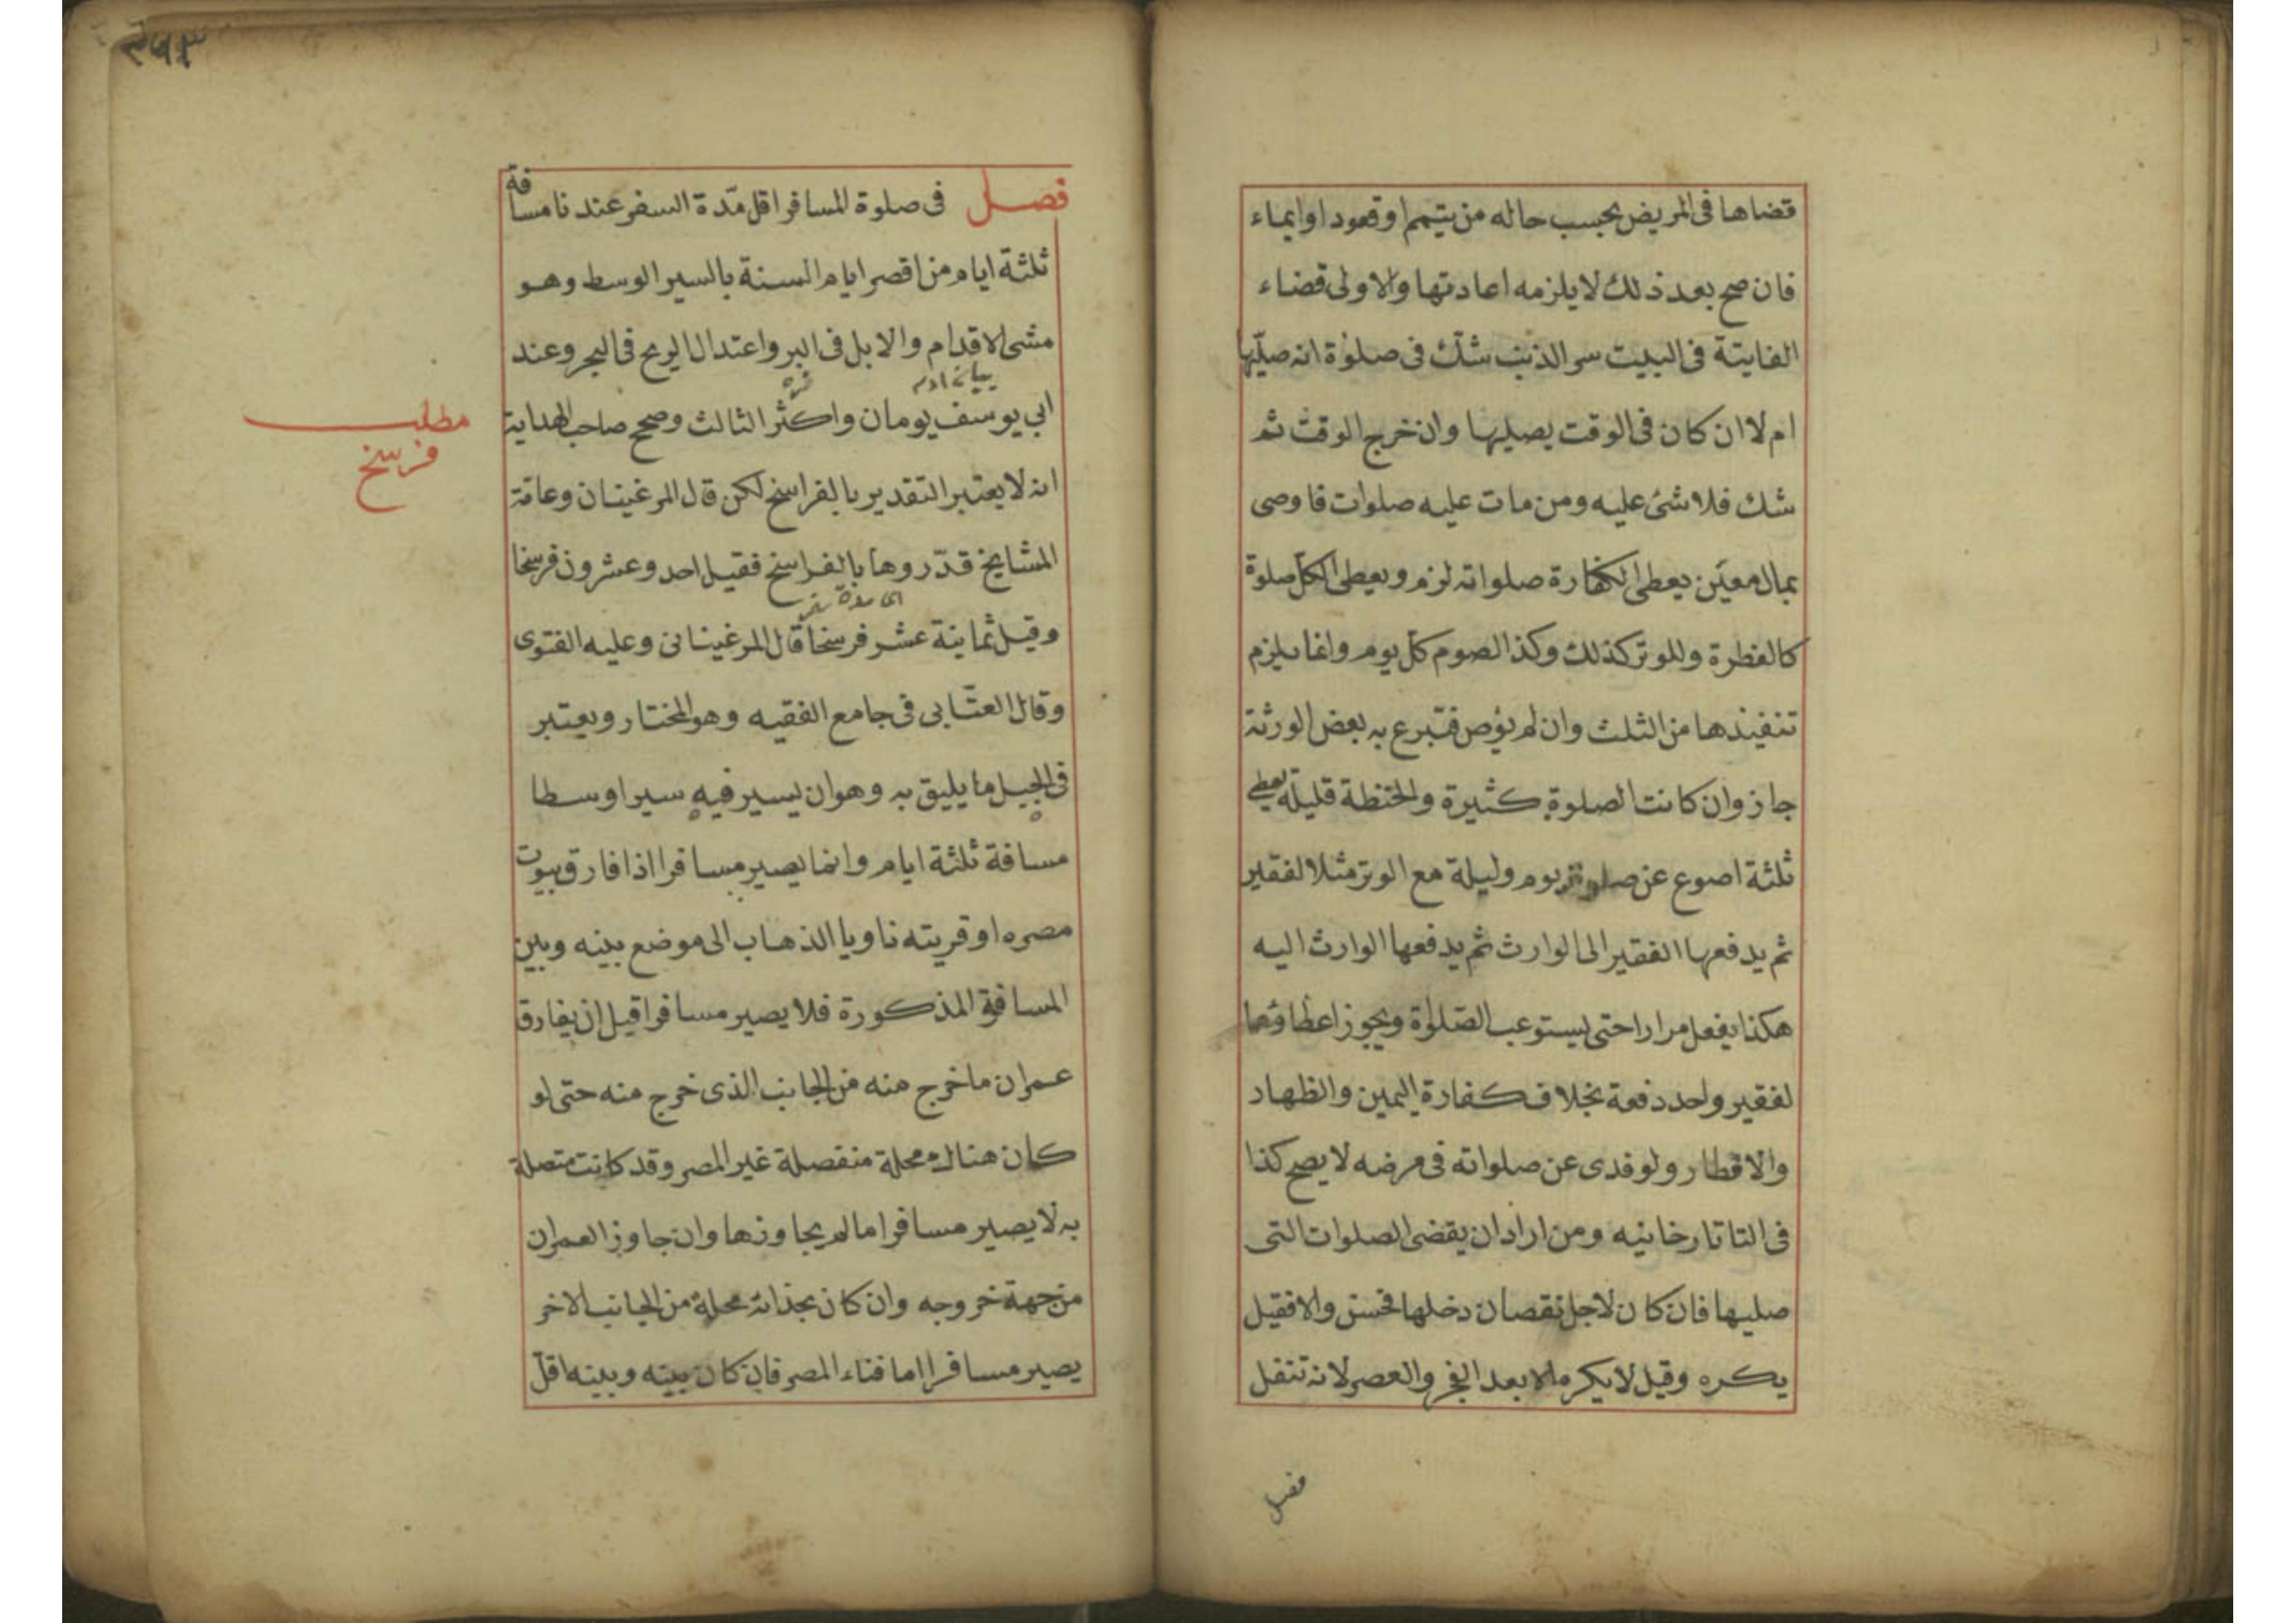 قضاها فى المريض بحسب حاله من يتيمم او قعود او ايماء
فان صح بعد ذلك لا يلزمه اعادتها والاولى قضاء
الفايتة فى البيت سر الذنب شك فى صلوة انه صليها
ام لا ان كان فى الوقت يصليها وان خرج الوقت ثم
شك فلا شئ عليه ومن مات عليه صلوات فاوصى
بمال معين يعطى لكفارة صلواته لزم ويعطى لكل صلوة
كالفطرة وللوتر كذلك وكذا الصوم كل يوم وانما يلزم
تنفيذها من الثلث وان لم يوص فتبرع به بعض الورثة
جاز وان كانت الصلوة كثيرة والحنظة قليلة يعطى
ثلثة اصوع عن صلوة يوم وليلة مع الوتر مثلا لفقير
ثم يدفعها الفقير الى الوارث ثم يدفعها الوارث اليه
هكذا يفعل مرارا حتى يستوعب الصلوة ويجوز اعطاؤها
لفقير واحد دفعة بخلاف كفارة اليمين والظهار
والافطار ولو فدى عن صلواته فى مرضه لا يصح كذا
فى التاتارخانيه ومن اراد ان يقضى الصلوات التى
صليها فان كان لاجل نقصان دخلها فحسن والا فقيل
يكره وقيل لا يكره الا بعد الفجر والعصر لانه تنفل
فصل
فصل فى صلوة المسافر اقل مدة السفر عندنا مسافة
ثلثة ايام من اقصر ايام السنة بالسير الوسط وهو
مشى الاقدام والابل فى البر واعتدال الريح فى البحر وعند
ابى يوسف يومان واكثر الثالث وصحح صاحب الهداية
مطلب
فرسخ
انه لا يعتبر التقدير بالفراسخ لكن قال المرغينان وعامة
المشايخ قدروها بالفراسخ فقيل احد وعشرون فرسخا
اى مدة سفر
وقيل ثماينة عشر فرسخا قال المرغينانى وعليه الفتوى
وقال العتابى فى جامع الفقيه وهو المختار ويعتبر
فى الجبل ما يليق به وهو ان يسير فيه سيرا وسطا
مسافة ثلثة ايام وانما يصير مسافرا اذا فارق بيوت
مصره او قريته ناويا الذهاب الى موضع بينه وبين
المسافة المذكورة فلا يصير مسافرا قبل ان يفارق
عمران ما خرج منه من الجانب الذى خرج منه حتى لو
كان هناك محلة منفصلة غير المصر وقد كانت متصلة
به لا يصير مسافرا ما لم يجاوزها وان جاوز العمران
من جهة خروجه وان كان بحذائه محلة من الجانب الاخر
يصير مسافرا اما فناء المصر فان كان بينه وبينه اقل